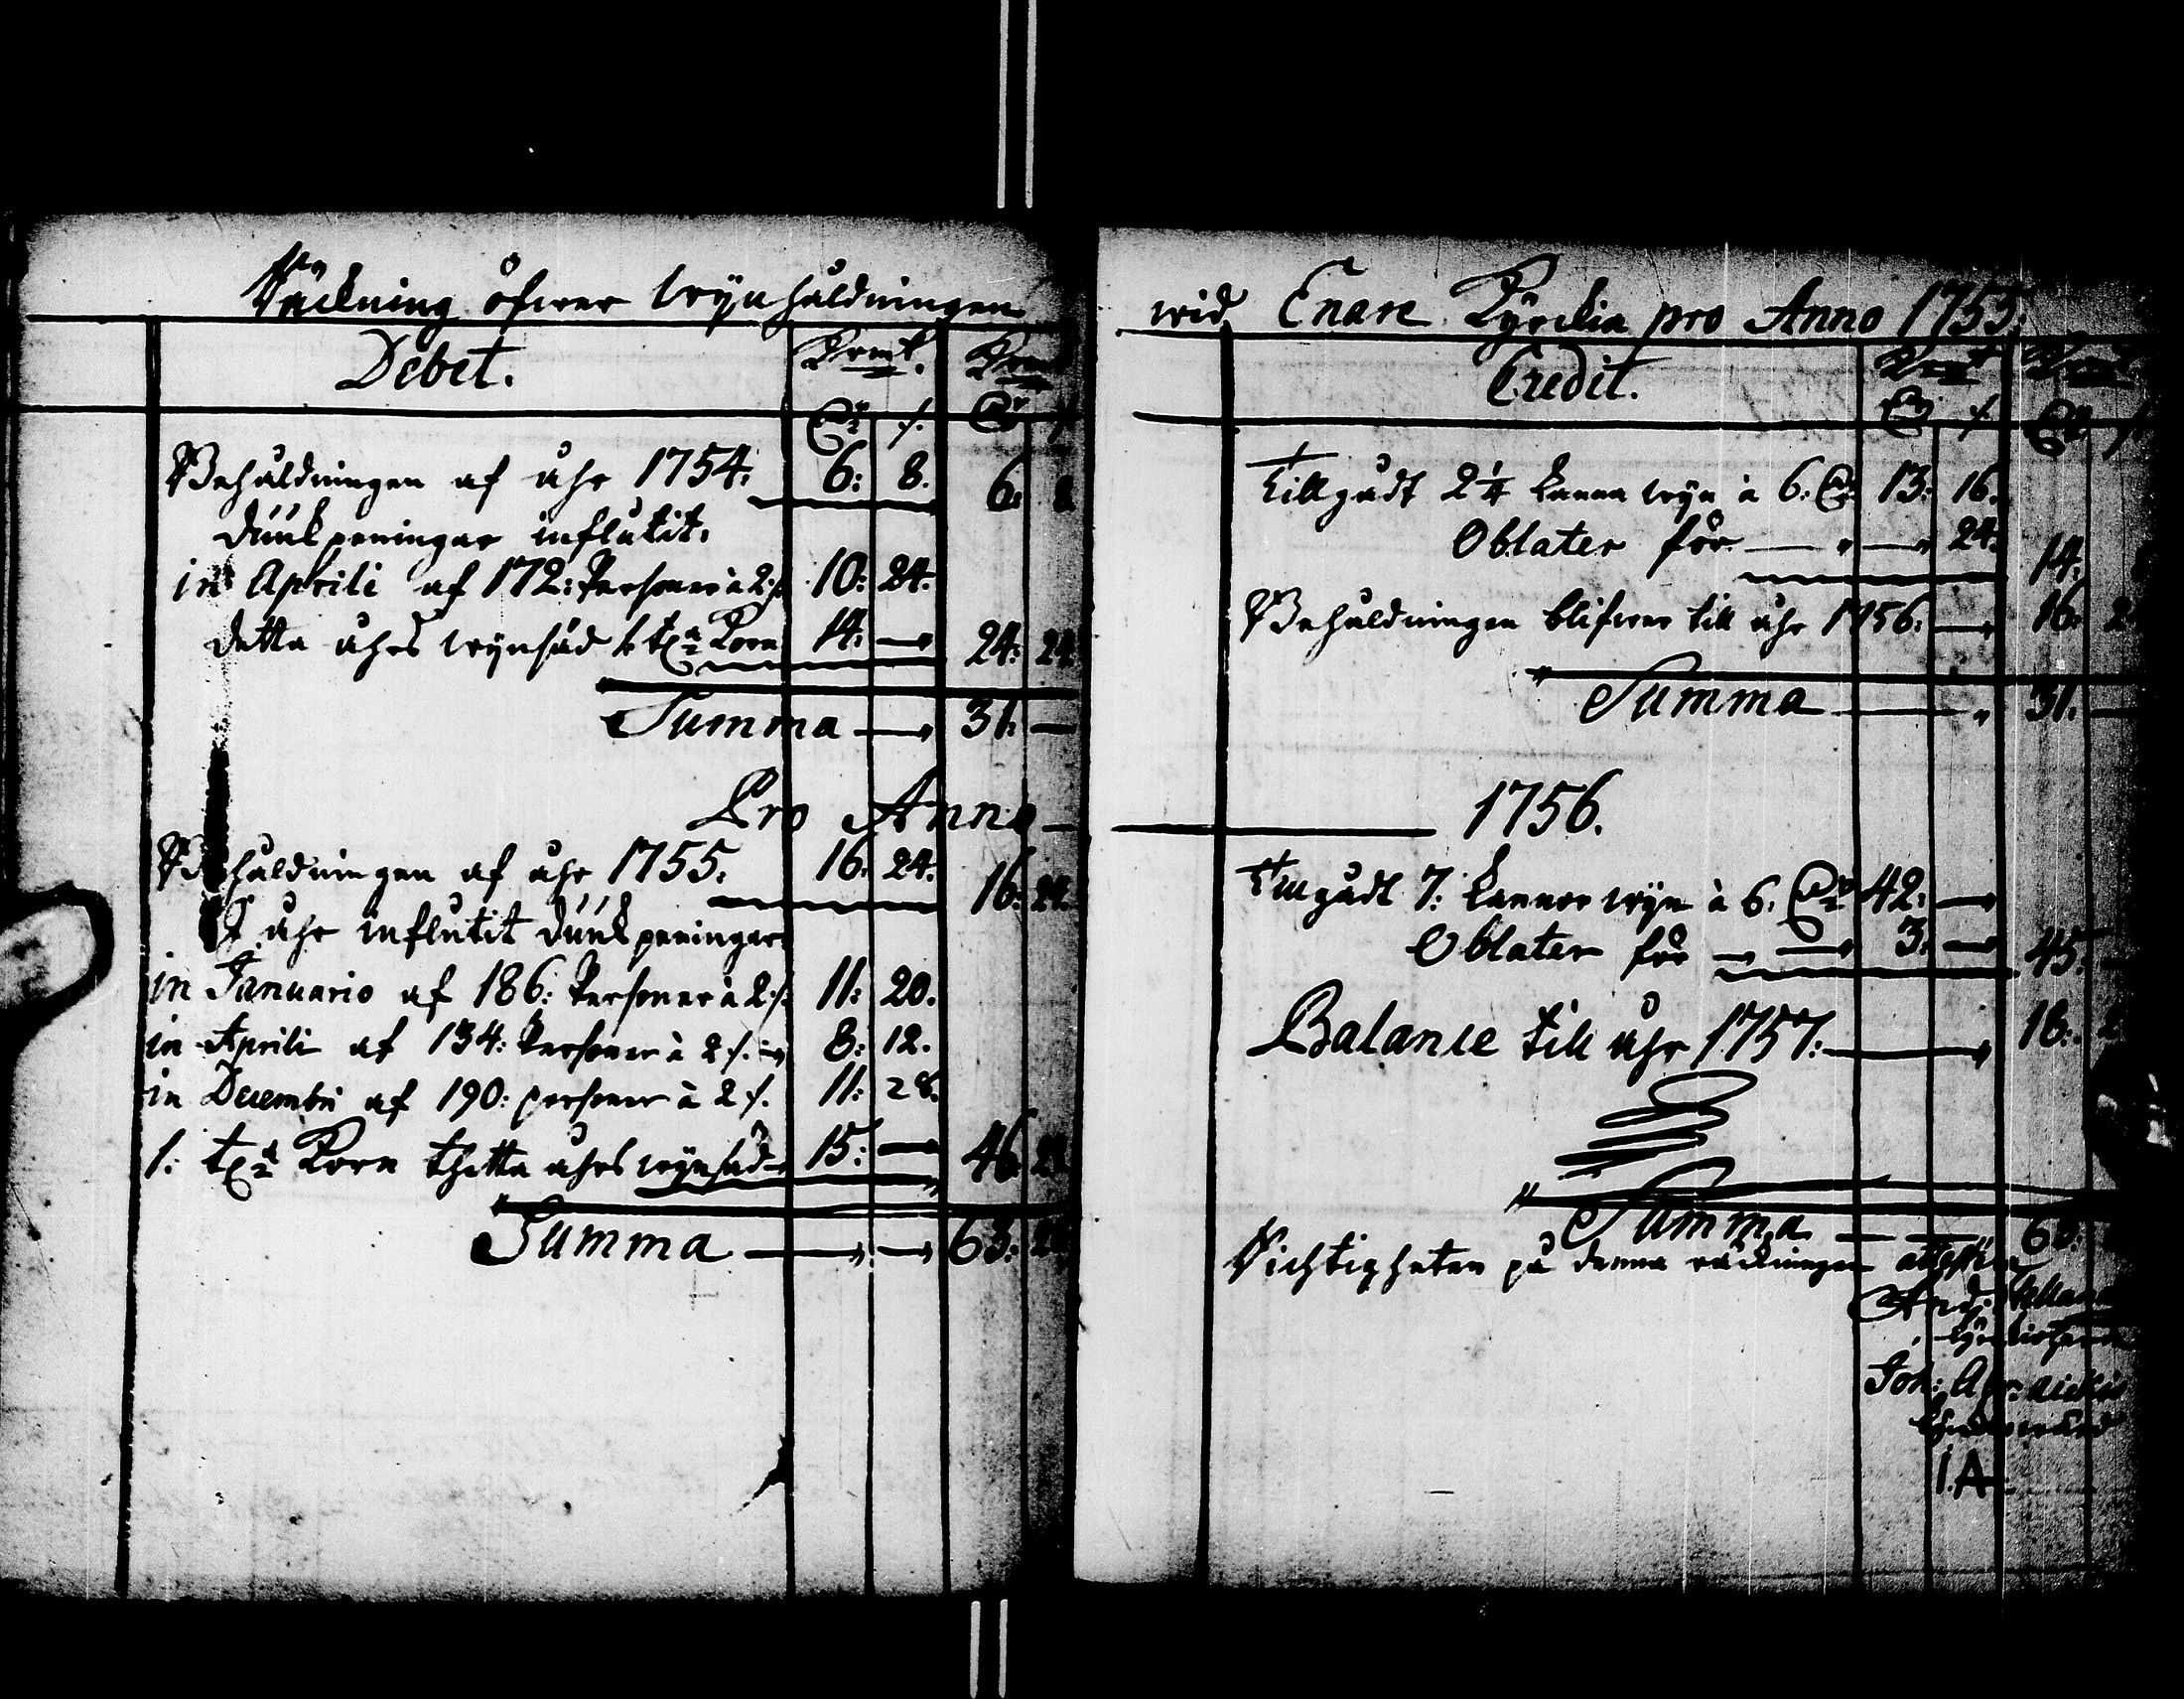 Räckning öfwer wynhåldningen
Debet. Kopmt. Kopmt
Dr ./. Dr ./.
Behåldningen af åhr 1754. 6: 8. 6: 8
Dünkpeningar influtit.
in Aprili af 172: Personer à 2 ./. 10: 24.
detta åhrs wynsäd 1 t:a Korn 14: — 24: 24.
Summa — 31: —
Pro Anno —
Behåldningen af åhr 1755. 16. 24. 16: 24.
I åhr influtit Dünkpeningar
in Januario af 186: Personer à 2 ./. 11: 20.
in Aprili af 134: Personer à 2 ./. 8: 12.
in Decembri af 190: personer à 2 ./. 11: 28.
1: t:a Korn thetta åhrs wynsäd 15: — 46: 28
Summa — — 63: 20
wid Enare Kyrckia pro Anno 1755.
Credit.
Dr ./. Dr ./.
Tillgådt 2 1/4 kanna wyn à 6. Dr 13: 16.
Oblater för — " — 24. 14:
Behåldningen blifwer till åhr 1756: — 16: 24
Summa — " 31. —
— 1756.
Tillgådt 7: kannor wyn à 6. Dr 42: —
Oblater för — — 3. — 45:
Balance till åhr 1757: — 18: 2
Summa — — 63:
Richtigheten på denna räckningen attest
And: Hellan
Joh:
I.A